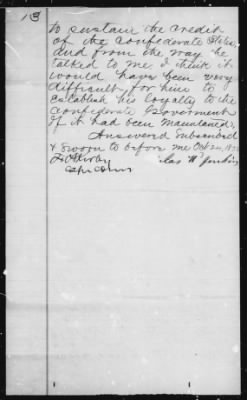 13
to sustain the credit
of the Confederate States,
and from the way he
talked to me, I think it
would have been very
difficult for him to
establish his loyalty to the
Confederate Government
if it had been maintained.
Answered Subscribed
& Sworn to before me Oct 24,
Chas W Jenkins